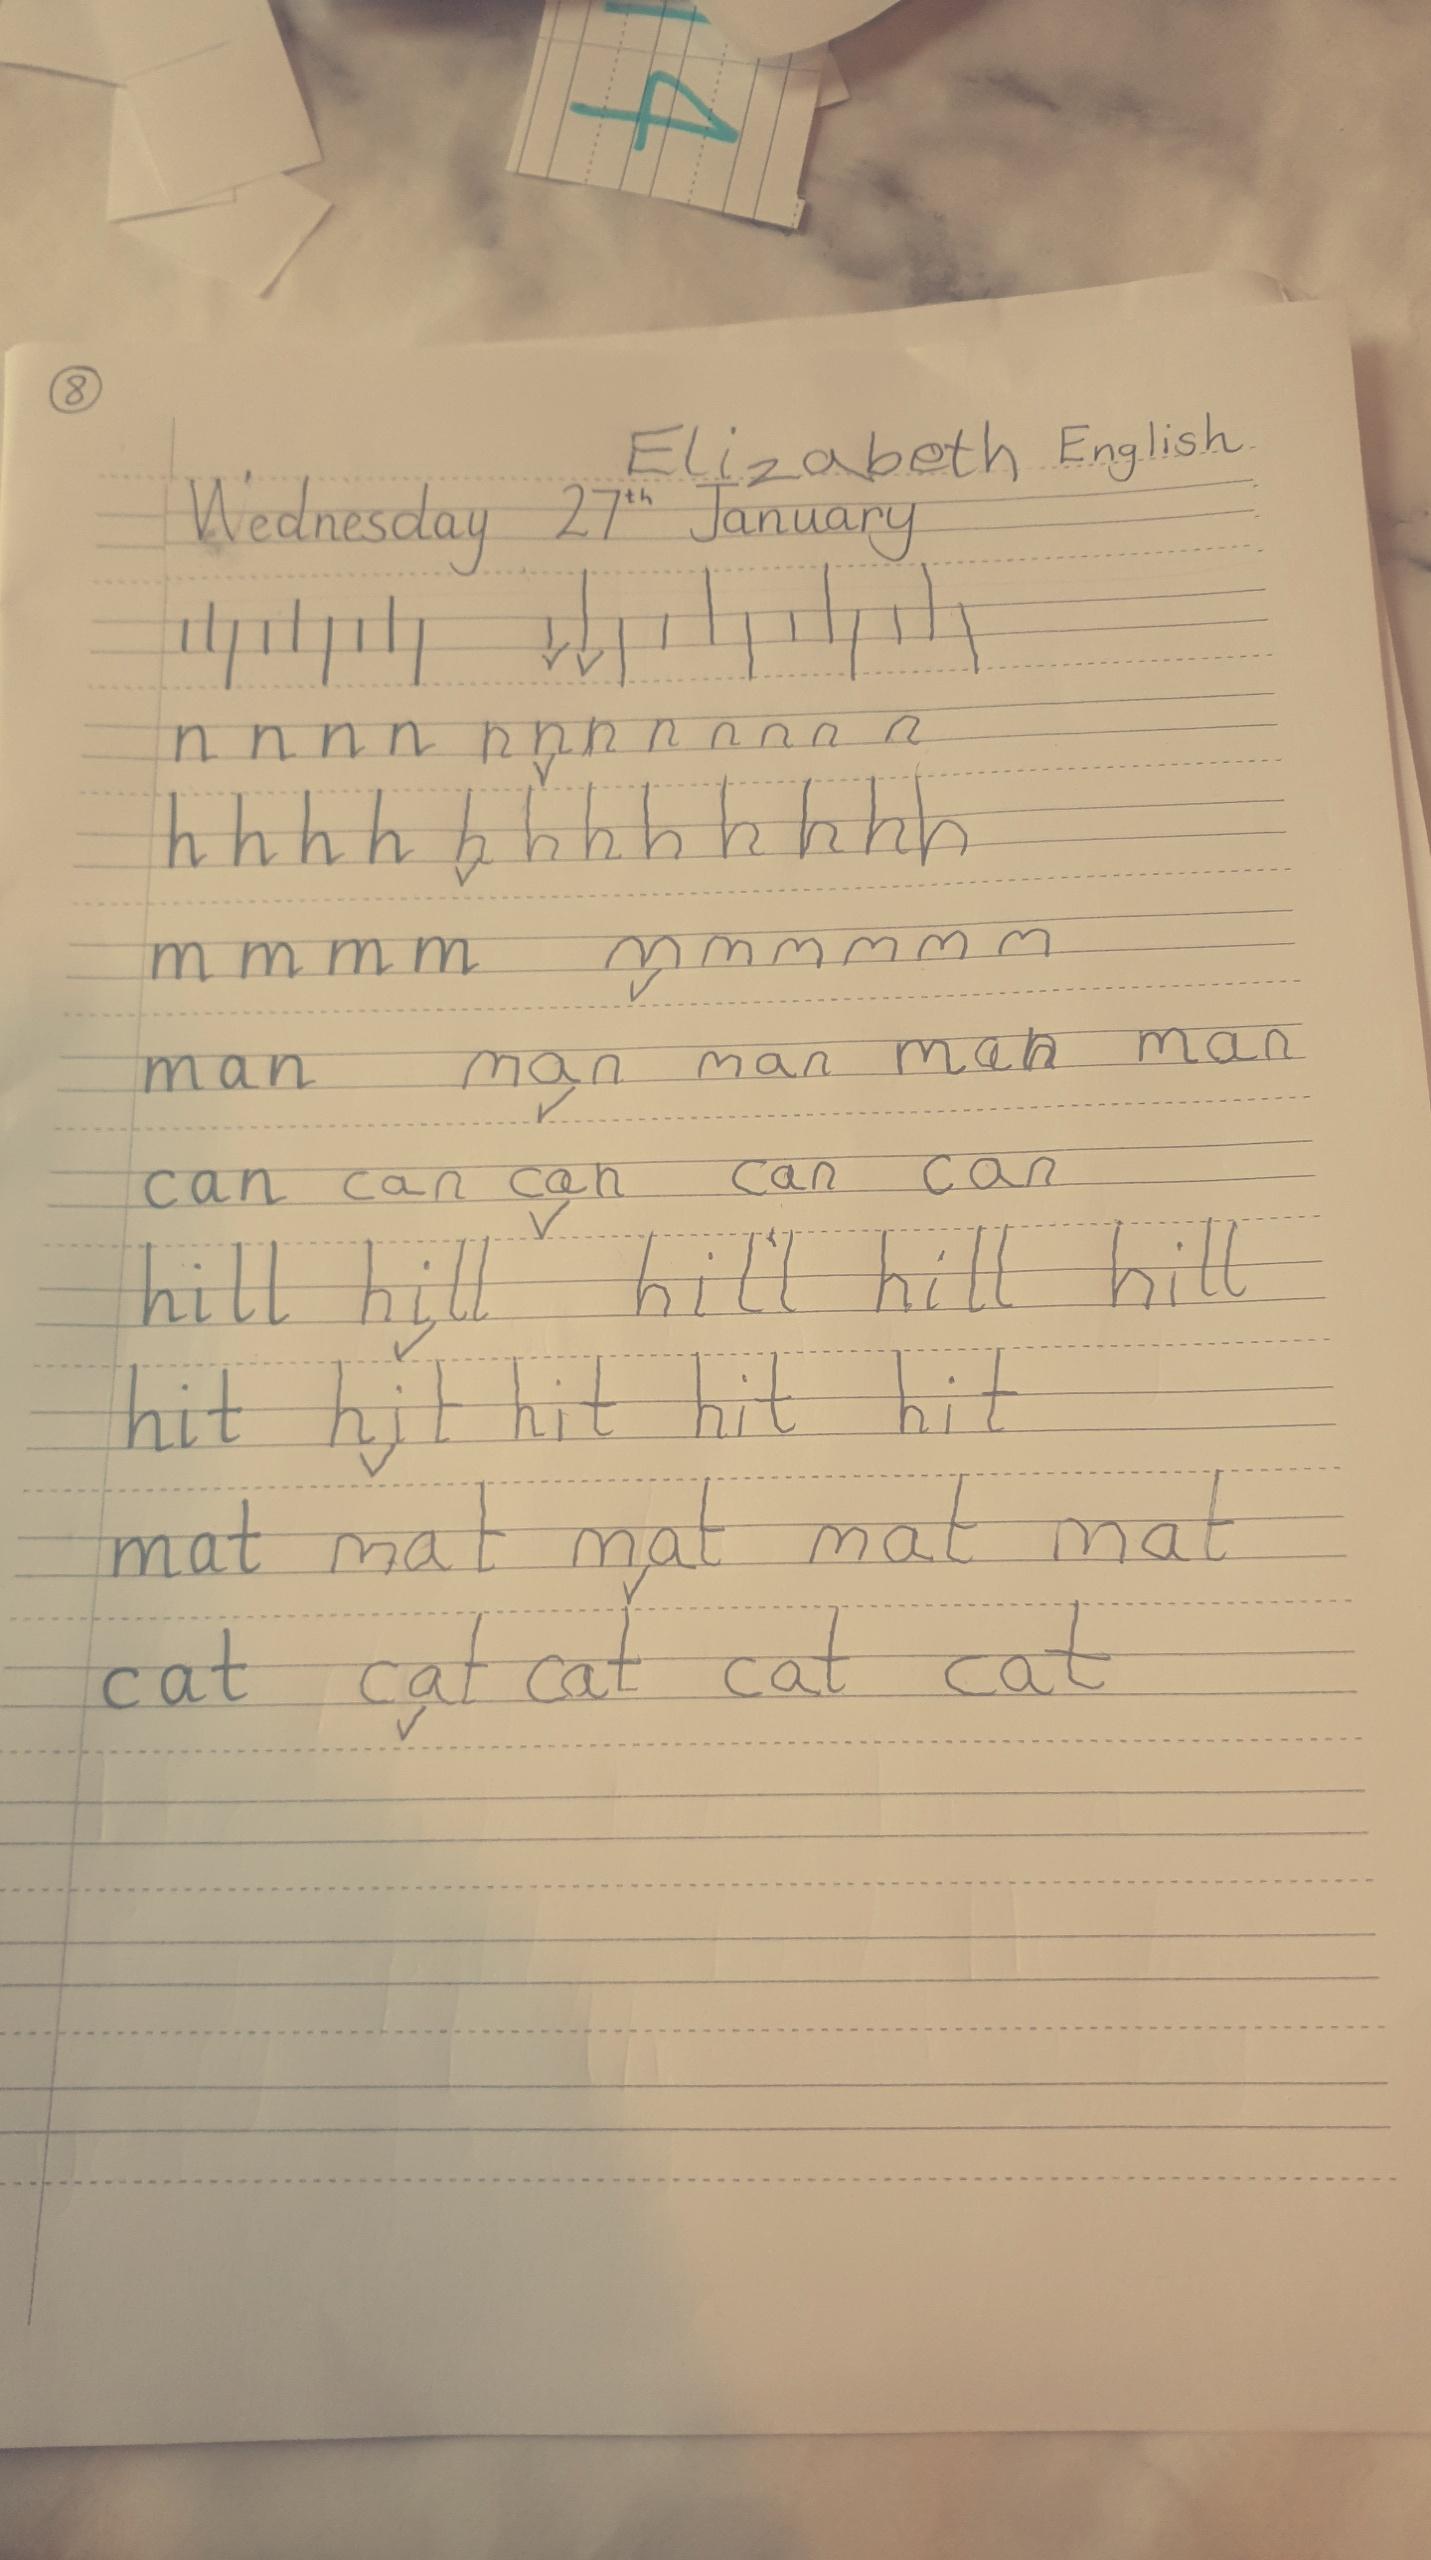 4
8
Elizabeth English
Wednesday 27th January
n n n n n n n n n n n n
h h h h h h h h h h h h
m m m m m m m m m m
man man man man man
can can can can can
hill hill hill hill hill
hit hit hit hit hit
mat mat mat mat mat
cat cat cat cat cat